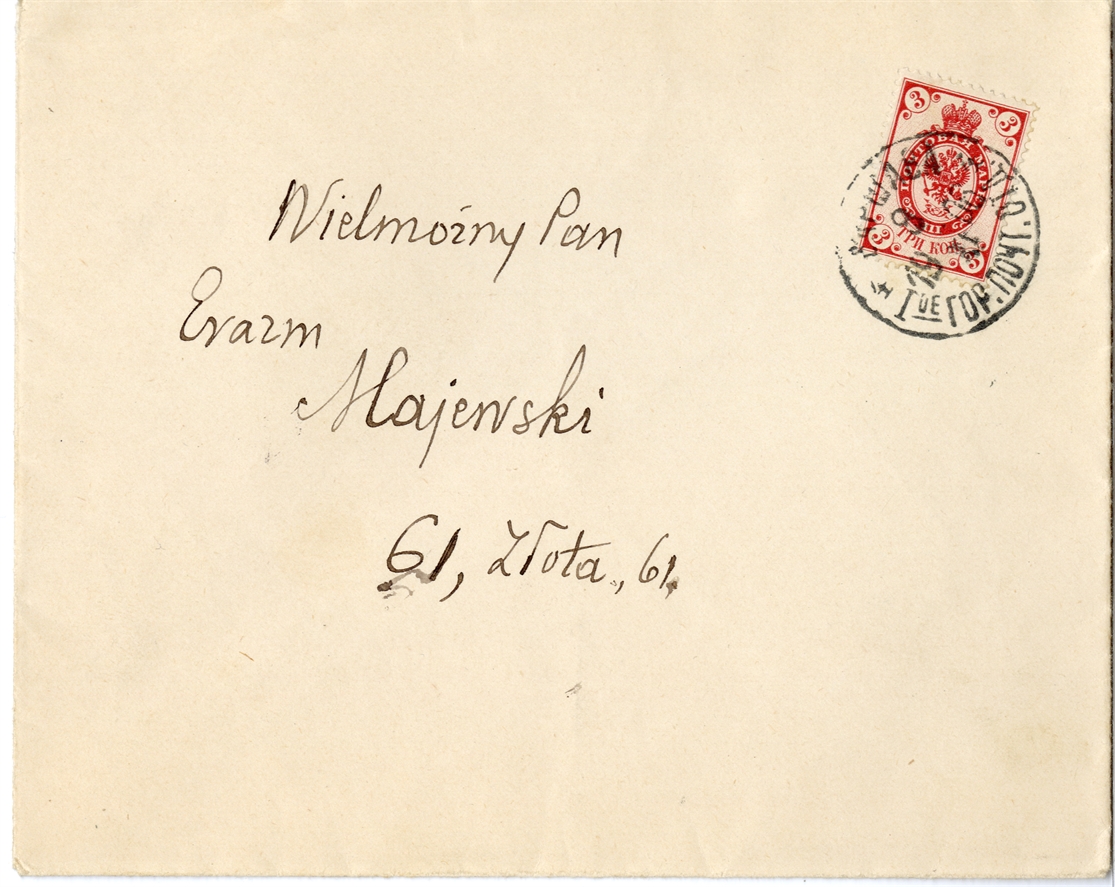 Wielmożny Pan
Erazm
Majewski
61, Złota, 61
3 3
ПОЧТОВАЯ МАРКА
ТРИ КОП.
3 3
ВАРШАВА
ІОЕ ГОР. ПОЧТ. ОТД.